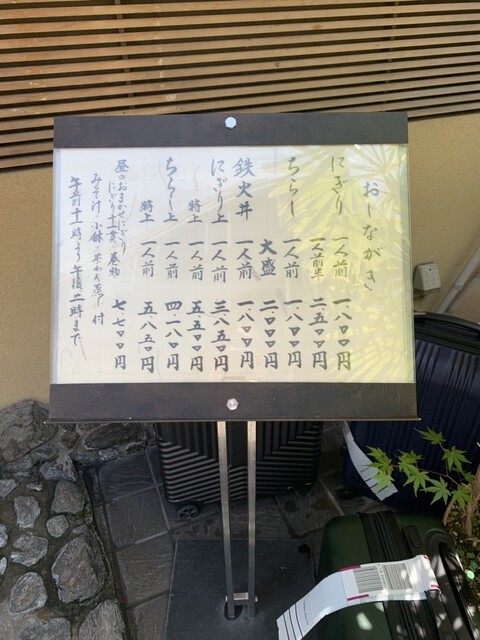 おしながき
にぎり 一人前 一、八〇〇円
一人前半 二、五〇〇円
ちらし 一人前 一、八〇〇円
大盛 二、〇〇〇円
鉄火丼 一人前 一、八〇〇円
にぎり上 一人前 三、八五〇円
特上 一人前 五、五〇〇円
ちらし上 一人前 四、一八〇円
特上 一人前 五、八五〇円
昼のおまかせにぎり 七、七〇〇円
にぎり十一貫と巻物
みそ汁・小鉢・茶わん蒸し 付
午前十一時より午後二時まで